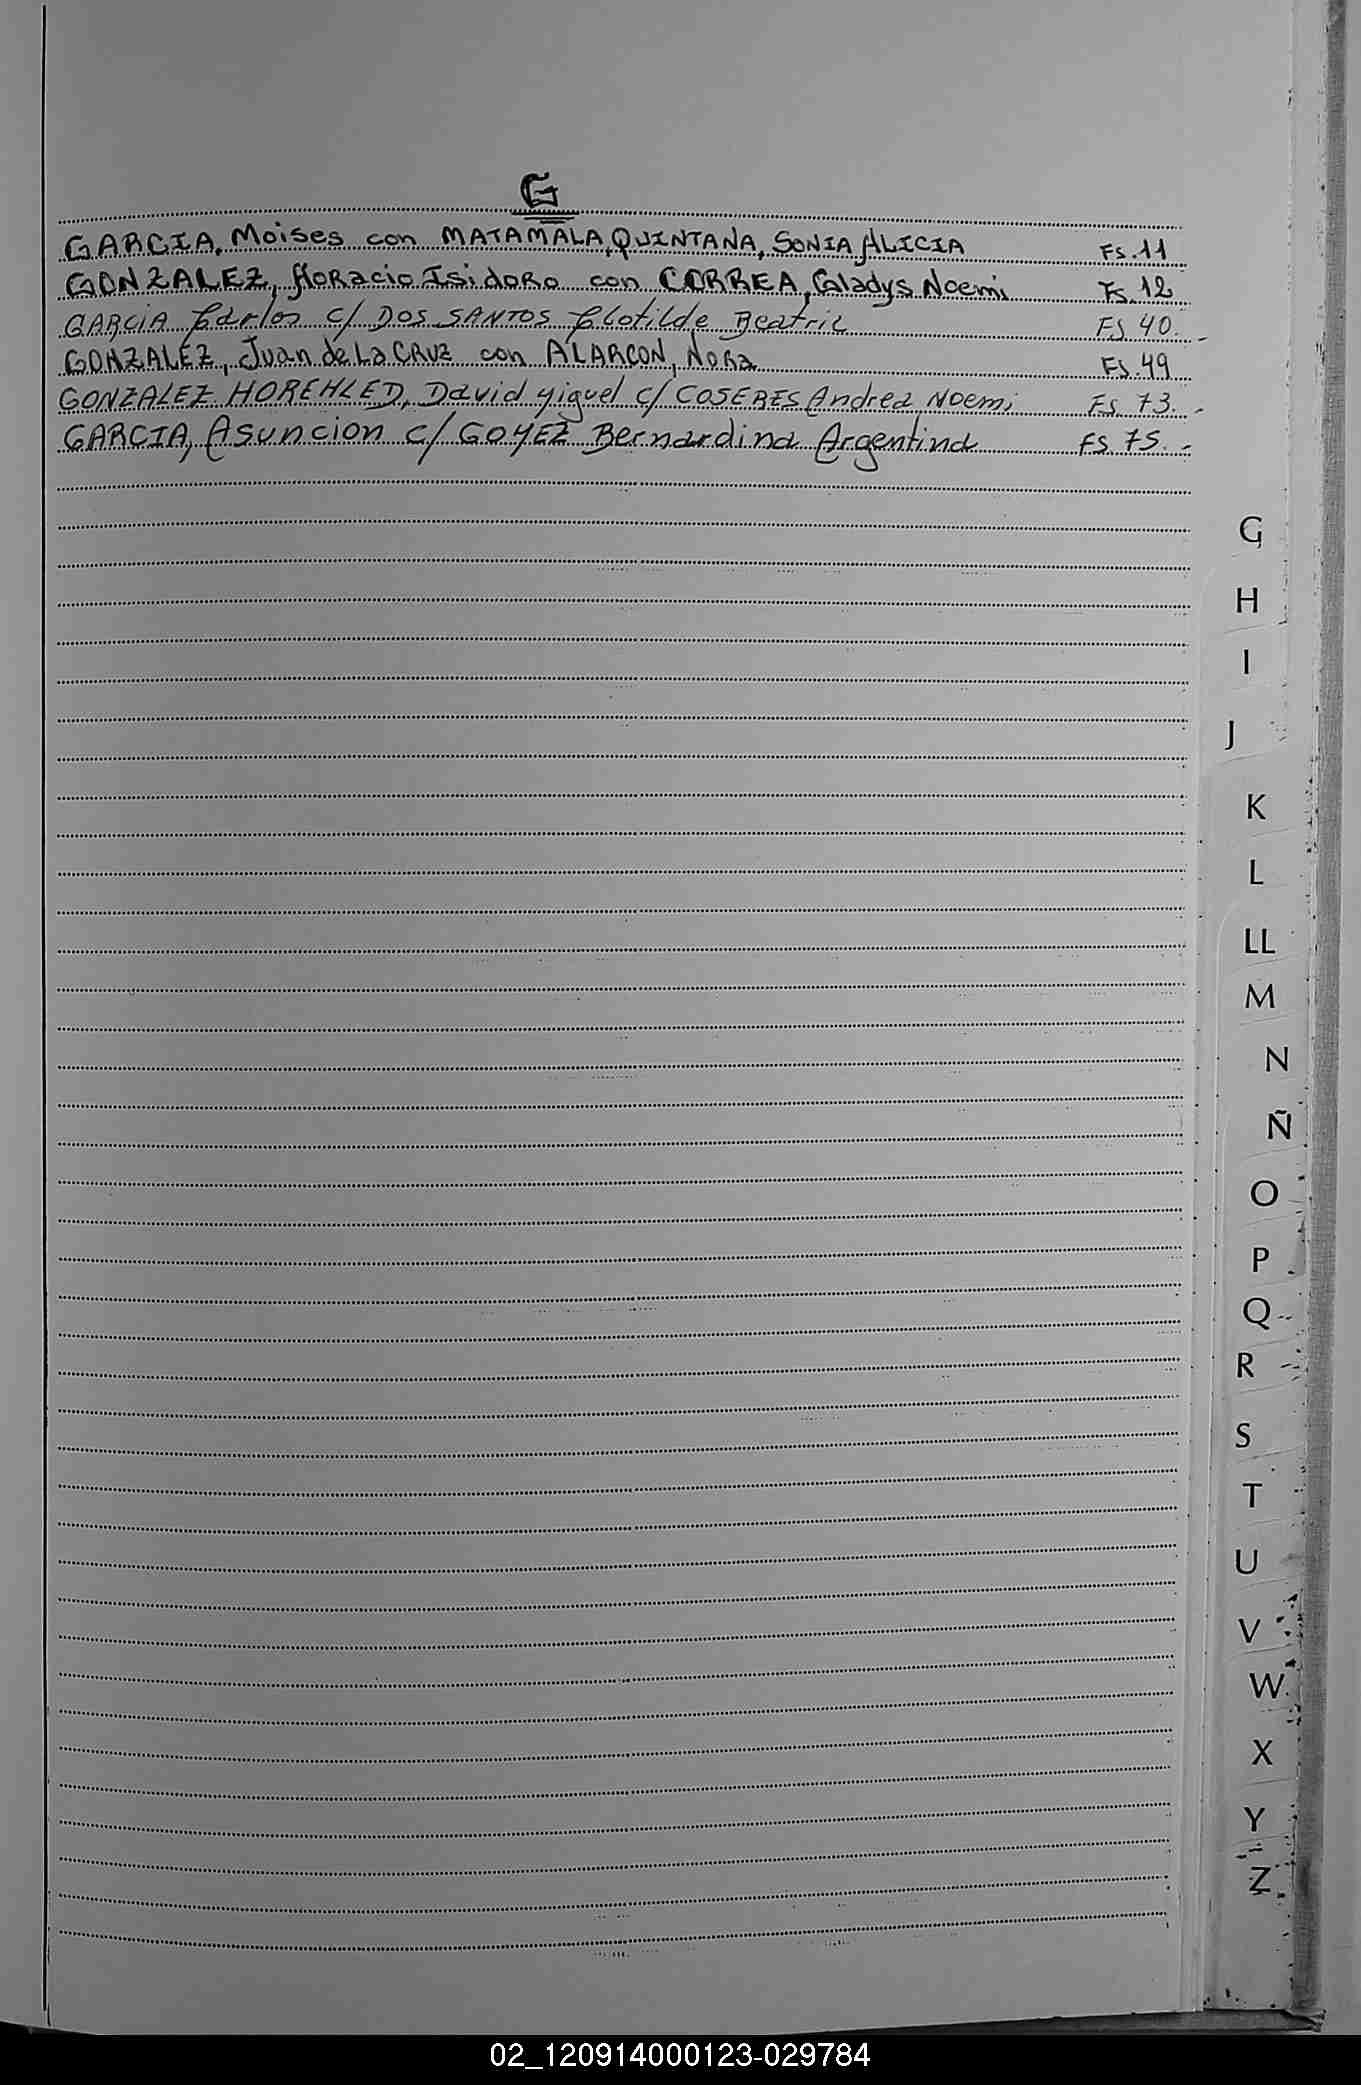 G
GARCIA, Moises con MATAMALA QUINTANA, SONIA ALICIA Fs. 11
GONZALEZ, Horacio Isidoro con CORREA, Gladys Noemi Fs. 12
GARCIA Carlos c/ DOS SANTOS Clotilde Beatriz FS 40.-
GONZALEZ, Juan de La CRUZ con ALARCON, NORA Fs. 49
GONZALEZ HOREHLED, David Miguel c/ COSERES Andrea Noemi FS 73.-
GARCIA, Asuncion c/ GOMEZ Bernardina Argentina FS. 75.-
G
H
I
J
K
L
LL
M
N
Ñ
O
P
Q
R
S
T
U
V
W
X
Y
Z
02_120914000123-029784